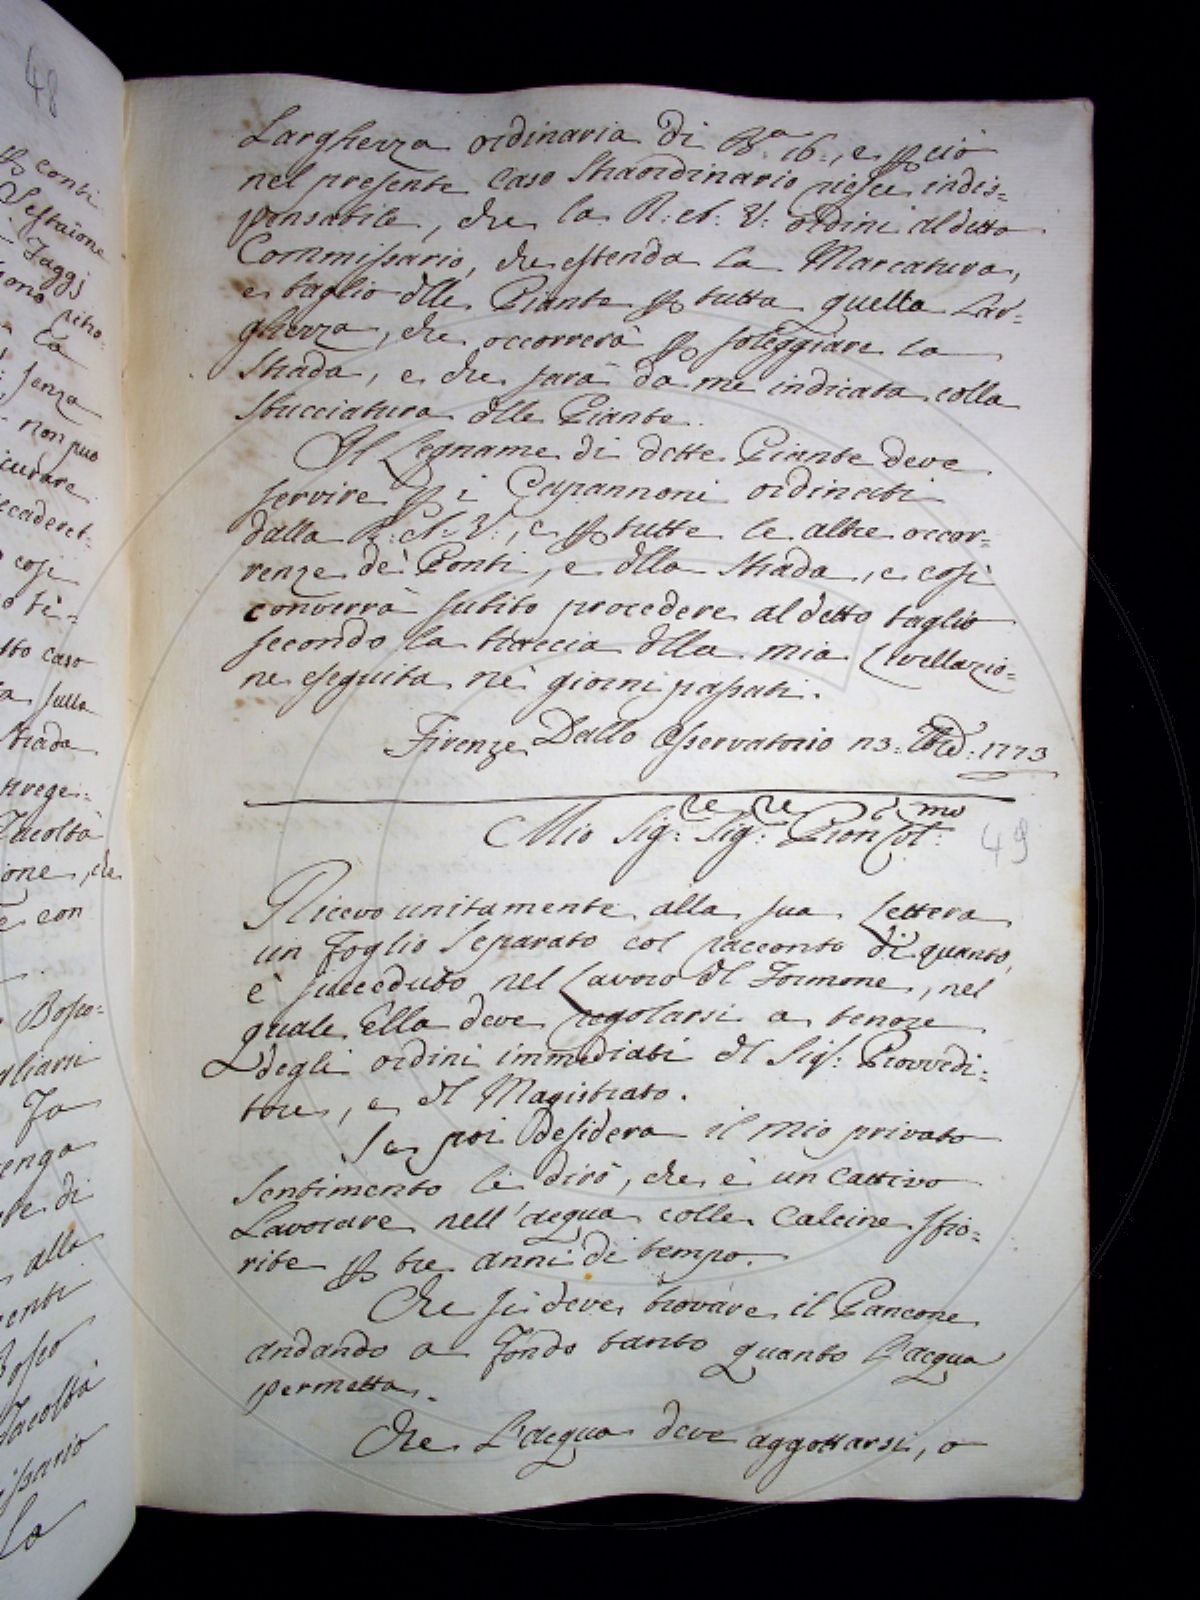 48
Larghezza ordinaria di B.a 16:, e p ciò
nel presente caso straordinario riesce indis=
pensabile, che la R: A: V: ordini al detto
Commissario, che estenda la Marcatura,
e taglio dlle Piante p tutta quella Lar=
ghezza, che occorrerà p soleggiare la
Strada, e che sarà da me indicata colla
Sbucciatura dlle Piante.
Il Legname di dette Piante deve
servire p i Capannoni ordinati
dalla R: A: V:, e p tutte le altre occor=
renze dè Ponti, e dlla Strada, e così
converrà subito procedere al detto taglio
secondo la traccia dlla mia Livellazio=
ne eseguita nè giorni passati.
Firenze Dallo Osservatorio 1773
Mio Sig:re Sig:re Pron Col:mo
49
Ricevo unitamente alla sua Lettera
un Foglio Separato col racconto di quanto
è succeduto nel Lavoro dl Tormone, nel
quale Ella deve regolarsi a tenore
degli ordini immediati dl Sig: Provvedi=
tore, e dl Magistrato.
Se poi desidera il mio privato
Sentimento le dirò, che è un cattivo
Lavorare nell'acqua colle Calcine sfio=
rite p tre anni di tempo.
Che si deve trovare il Pancone
andando a Fondo tanto quanto l'acqua
permetta.
Che L'acqua deve aggottarsi, o